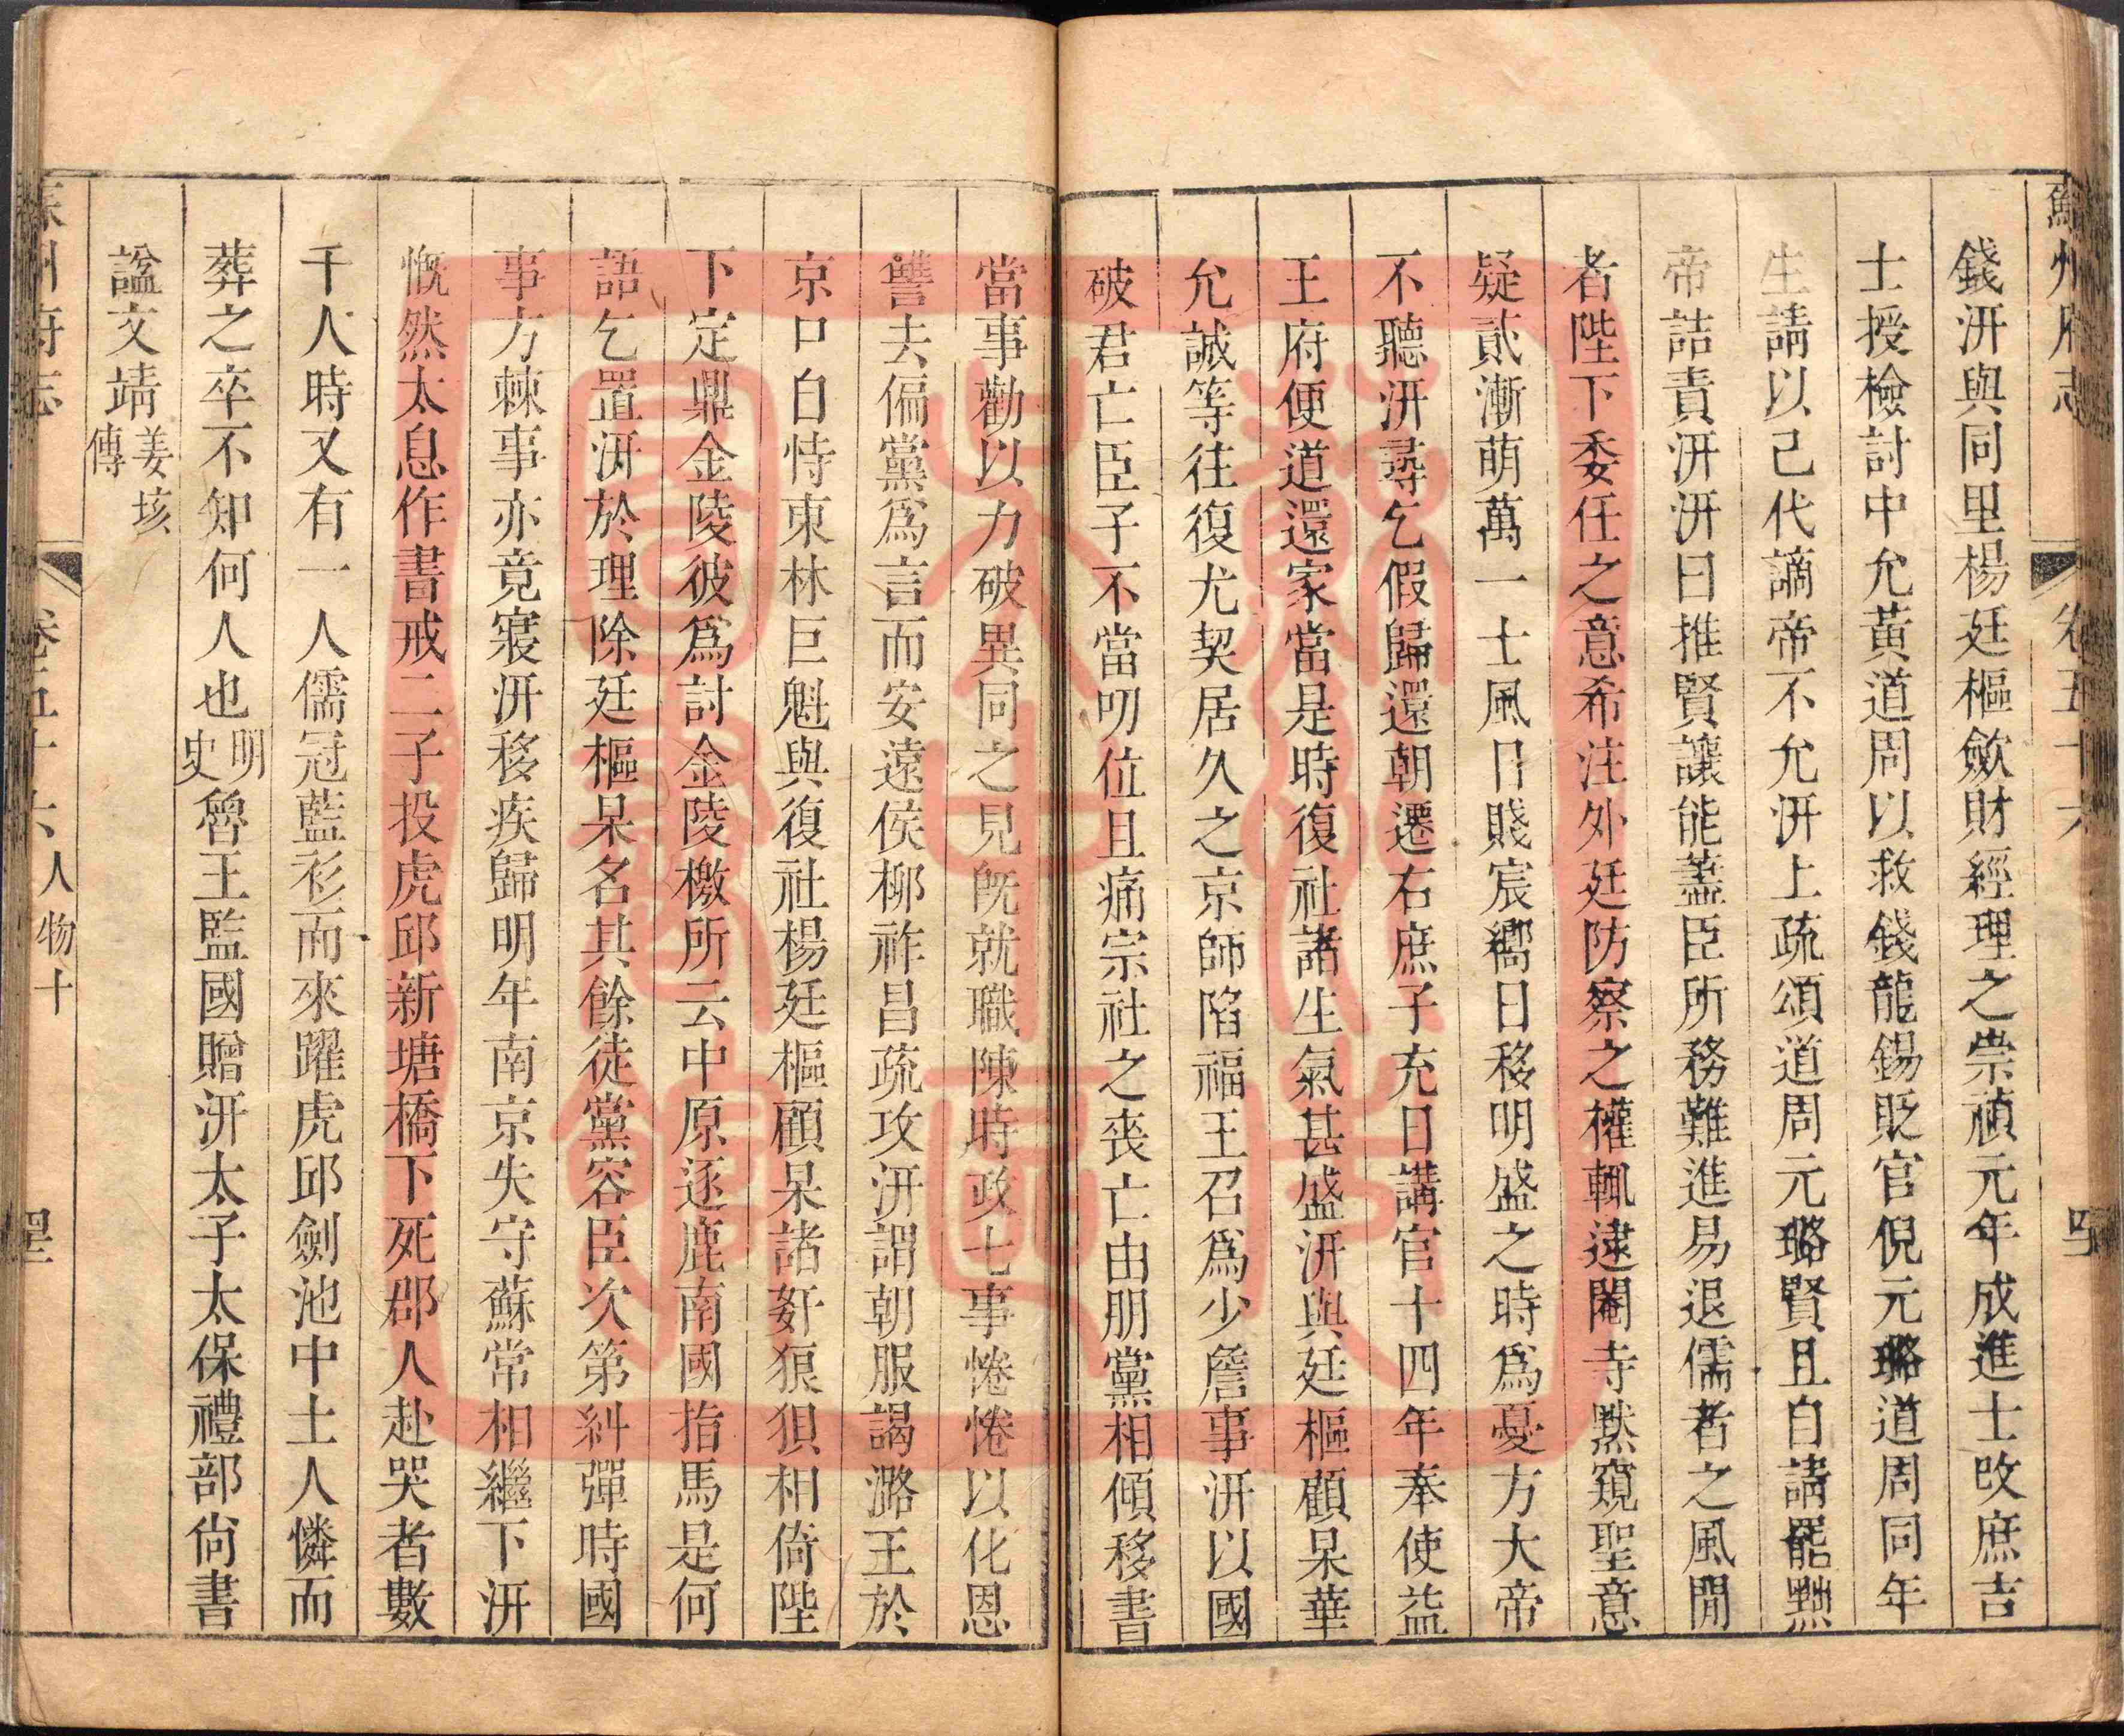 蘇州府志 卷五十六
錢汧與同里楊廷樞斂財經理之崇禎元年成進士改庶吉
士授檢討中允黃道周以救錢龍錫貶官倪元璐道周同年
生請以己代謫帝不允汧上疏頌道周元璐賢且自請罷黜
帝詰責汧汧曰推賢讓能藎臣所務難進易退儒者之風閒
者陛下委任之意希注外廷防察之權輒逮閹寺默窺聖意
疑貳漸萌萬一士風日賤宸嚮日移明盛之時爲憂方大帝
不聽汧尋乞假歸還朝遷右庶子充日講官十四年奉使益
王府便道還家當是時復社諸生氣甚盛汧與廷樞顧杲華
允誠等往復尤契居久之京師陷福王召爲少詹事汧以國
破君亡臣子不當叨位且痛宗社之喪亡由朋黨相傾移書
當事勸以力破異同之見旣就職陳時政七事惓惓以化恩
讐去偏黨爲言而安遠侯柳祚昌疏攻汧謂朝服謁潞王於
京口自恃東林巨魁與復社楊廷樞顧杲諸奸狠狽相倚陛
下定鼎金陵彼爲討金陵檄所云中原逐鹿南國指馬是何
語乞置汧於理除廷樞杲名其餘徒黨容臣次第糾彈時國
事方棘事亦竟寢汧移疾歸明年南京失守蘇常相繼下汧
慨然太息作書戒二子投虎邱新塘橋下死郡人赴哭者數
千人時又有一人儒冠藍衫而來躍虎邱劍池中土人憐而
葬之卒不知何人也明史魯王監國贈汧太子太保禮部尙書
諡文靖姜垓傳
蘇州府志 卷五十六 人物十